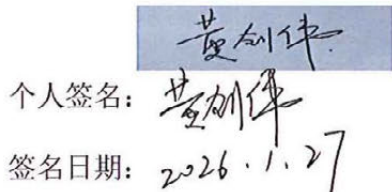 黄创伟
个人签名：黄创伟
签名日期：2026.1.27